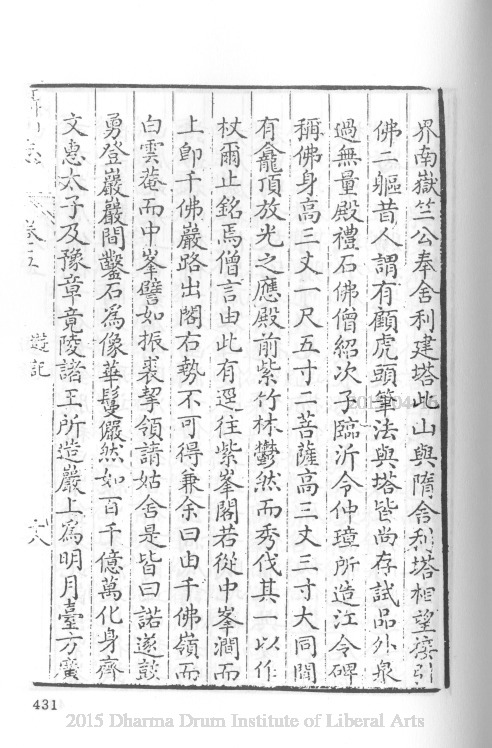 界南嶽竺公奉舍利建塔此山與隋舍利塔相望接引
佛二軀昔人謂有顧虎頭筆法與塔皆尚存試品外泉
過無量殿禮石佛僧紹次子臨沂令仲璋所造江令碑
稱佛身高三丈一尺五寸二菩薩高三丈三寸大同間
有龕頂放光之應殿前紫竹林鬱然而秀伐其一以作
杖爾止銘焉僧言由此有逕往紫峯閣若從中峯澗而
上卽千佛巖路出閣右勢不可得兼余曰由千佛嶺而
白雲菴而中峯譬如振裘挈領請姑舍是皆曰諾遂鼓
勇登巖巖間鑿石爲像華鬘儼然如百千億萬化身齊
文惠太子及豫章竟陵諸王所造巖上爲明月臺方廣
卷五
遊記
十八
431
2015 Dharma Drum Institute of Liberal Arts